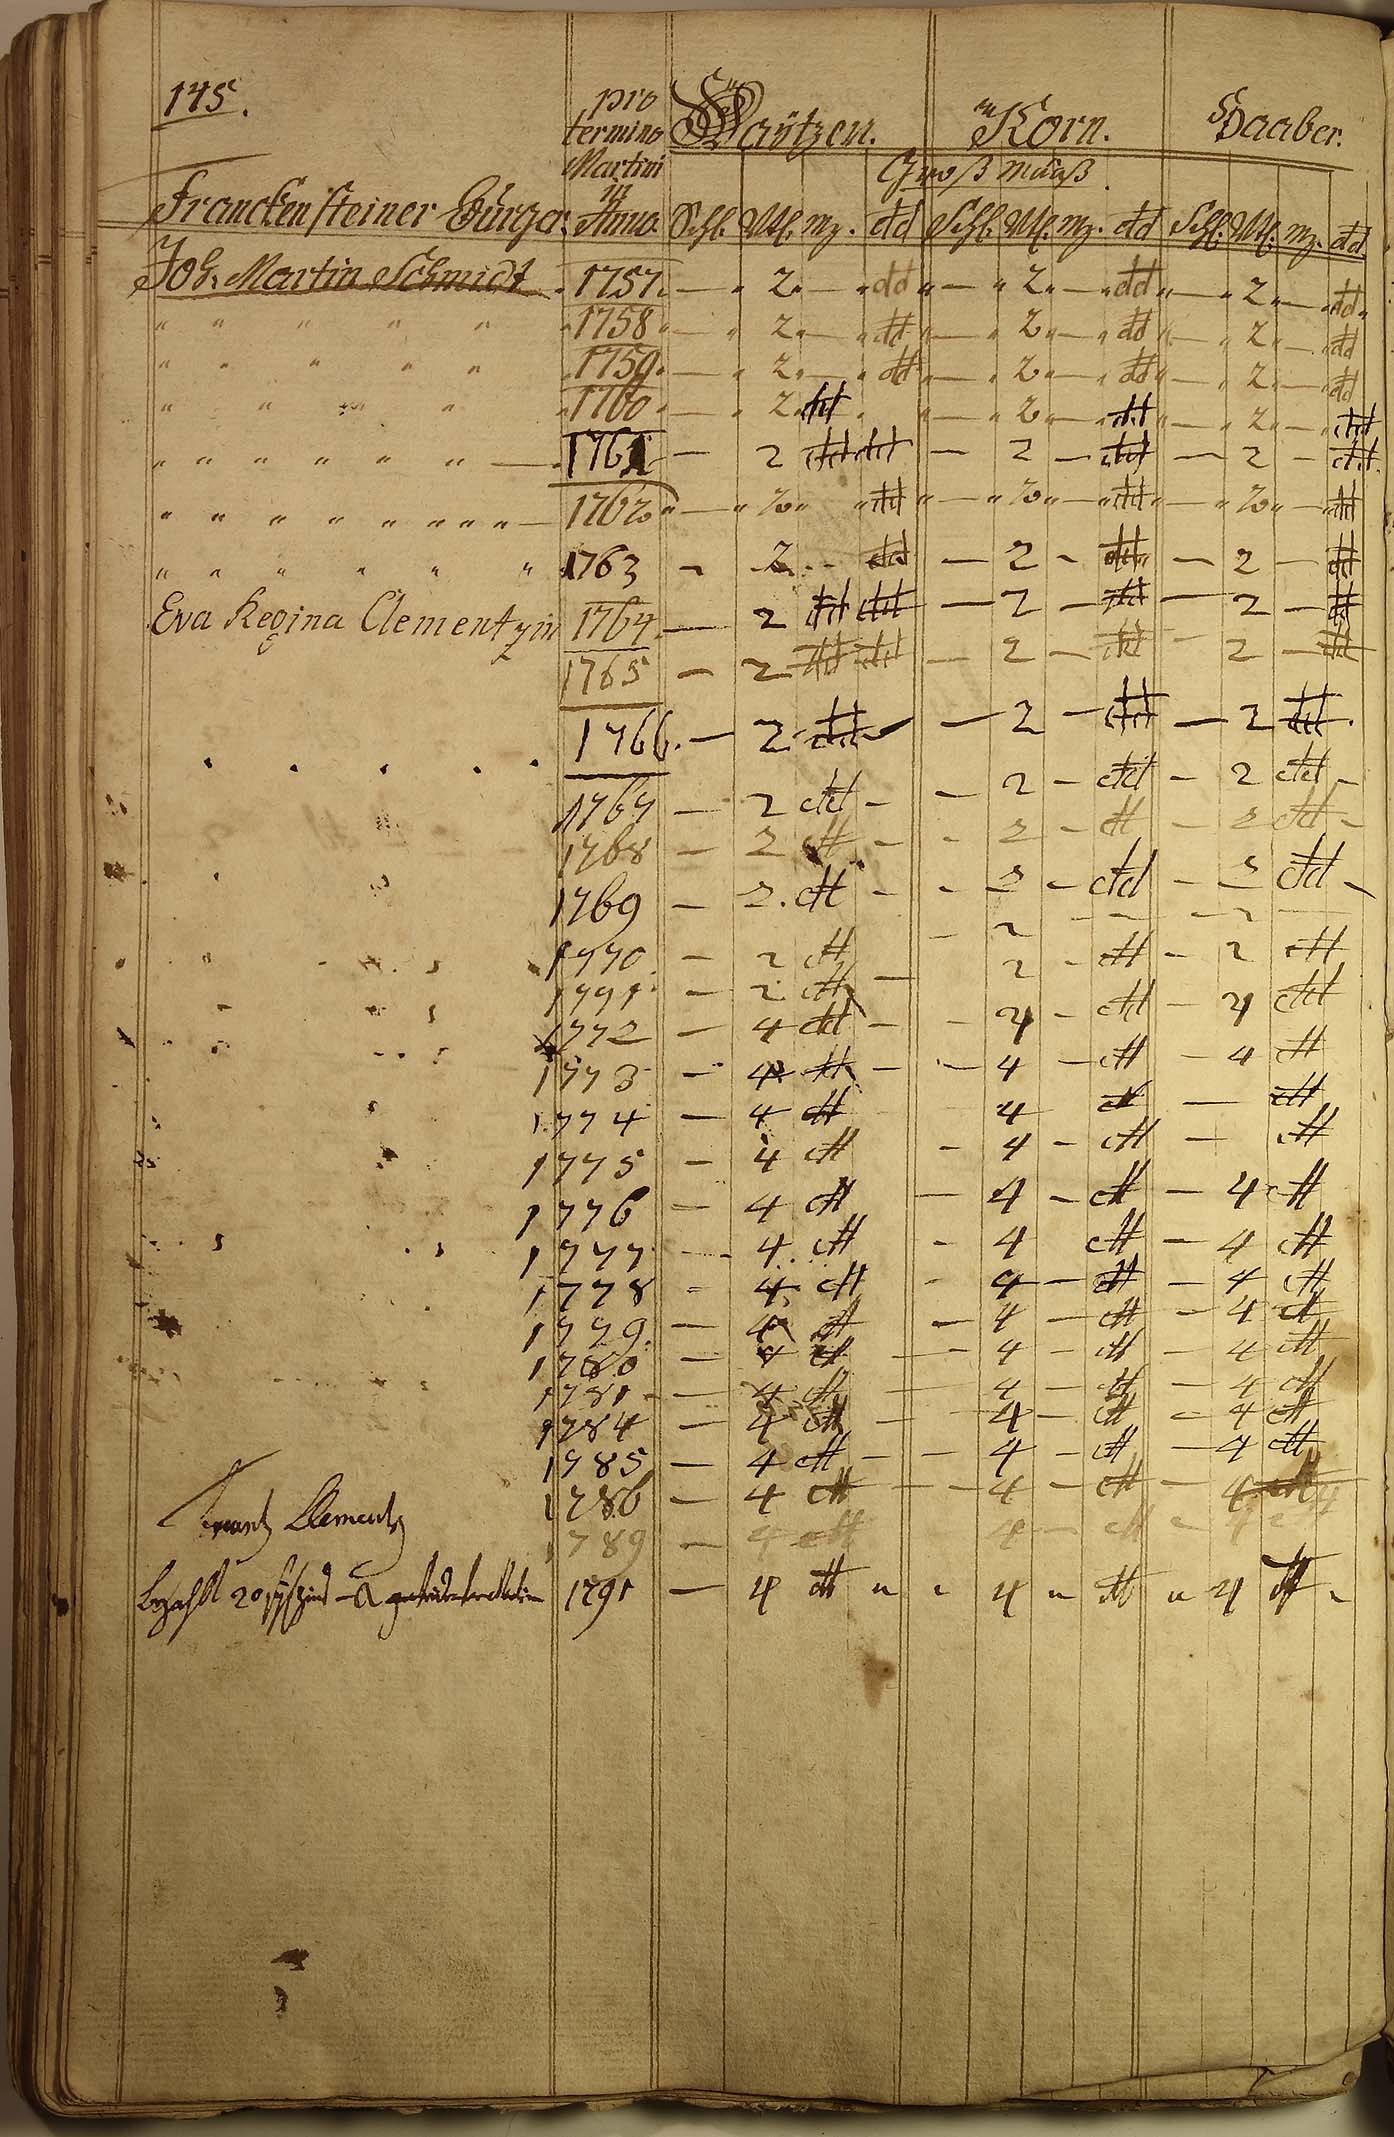 145.
pro termino Martini in Anno.
Waÿtzen. Korn. Haaber.
Groß Mäaß.
Franckensteiner Bürger. Schl. Vtl. mz. dd Schl. Vtl. mz. dd Schl. Vtl. mz. dd
Joh. Martin Schmidt 1757. — 2. — dd — 2 — dd — 2 — dd
" " " " " 1758 — 2. — dd — 2 — dd — 2 — dd
" " " " " 1759. — 2. — dd — 2 — dd — 2 — dd
" " " " 1760 — 2. dd — 2 — dd — 2 — dd
" " " " " " " — 1761 — 2 dd dd — 2 — dd — 2 — dd
" " " " " " " " " — 1762 — 2 dd — 2 — dd — 2 — dd
" " " " " " 1763 — 2 — dd — 2 — dd — 2 — dd
Eva Regina Clementzin 1764 — 2 dd dd — 2 — dd — 2 — dd
1765 — 2 dd dd — 2 — dd — 2 — dd
1766. — 2 dd — 2 — dd — 2 dd
1767 — 2 dd — — 2 — dd — 2 dd —
1768 — 2 dd — — 2 — dd — 2 dd —
1769 — 2. dd — — 2 — dd — 2 dd —
1770 — 2 dd — 2 — — 2 —
1771 — 2 dd — 2 — dd — 2 dd
1772 — 4 dd — — 4 — dd — 4 dd
1773 — 4 dd — — 4 — dd — 4 dd
1774 — 4 dd 4 dd — dd
1775 — 4 dd — 4 — dd — dd
1776 — 4 dd — 4 — dd — 4 dd
1777 — 4 dd — 4 dd — 4 dd
1778 — 4 dd — 4 — dd — 4 dd
1779. — 4 dd — 4 — dd — 4 dd
1780 — 4 dd — 4 — dd — 4 dd
1781 — 4 dd — 4 — dd — 4 dd
1784 — 4 dd — 4 — dd — 4 dd
1785 — 4 dd — — 4 — dd — 4 dd
1786 — 4 dd — — 4 — dd — 4
Frantz Clementz 1789 — 4 dd 4 — dd — 4
bezahlt 20 1791 — 4 dd — 4 — dd — 4 dd